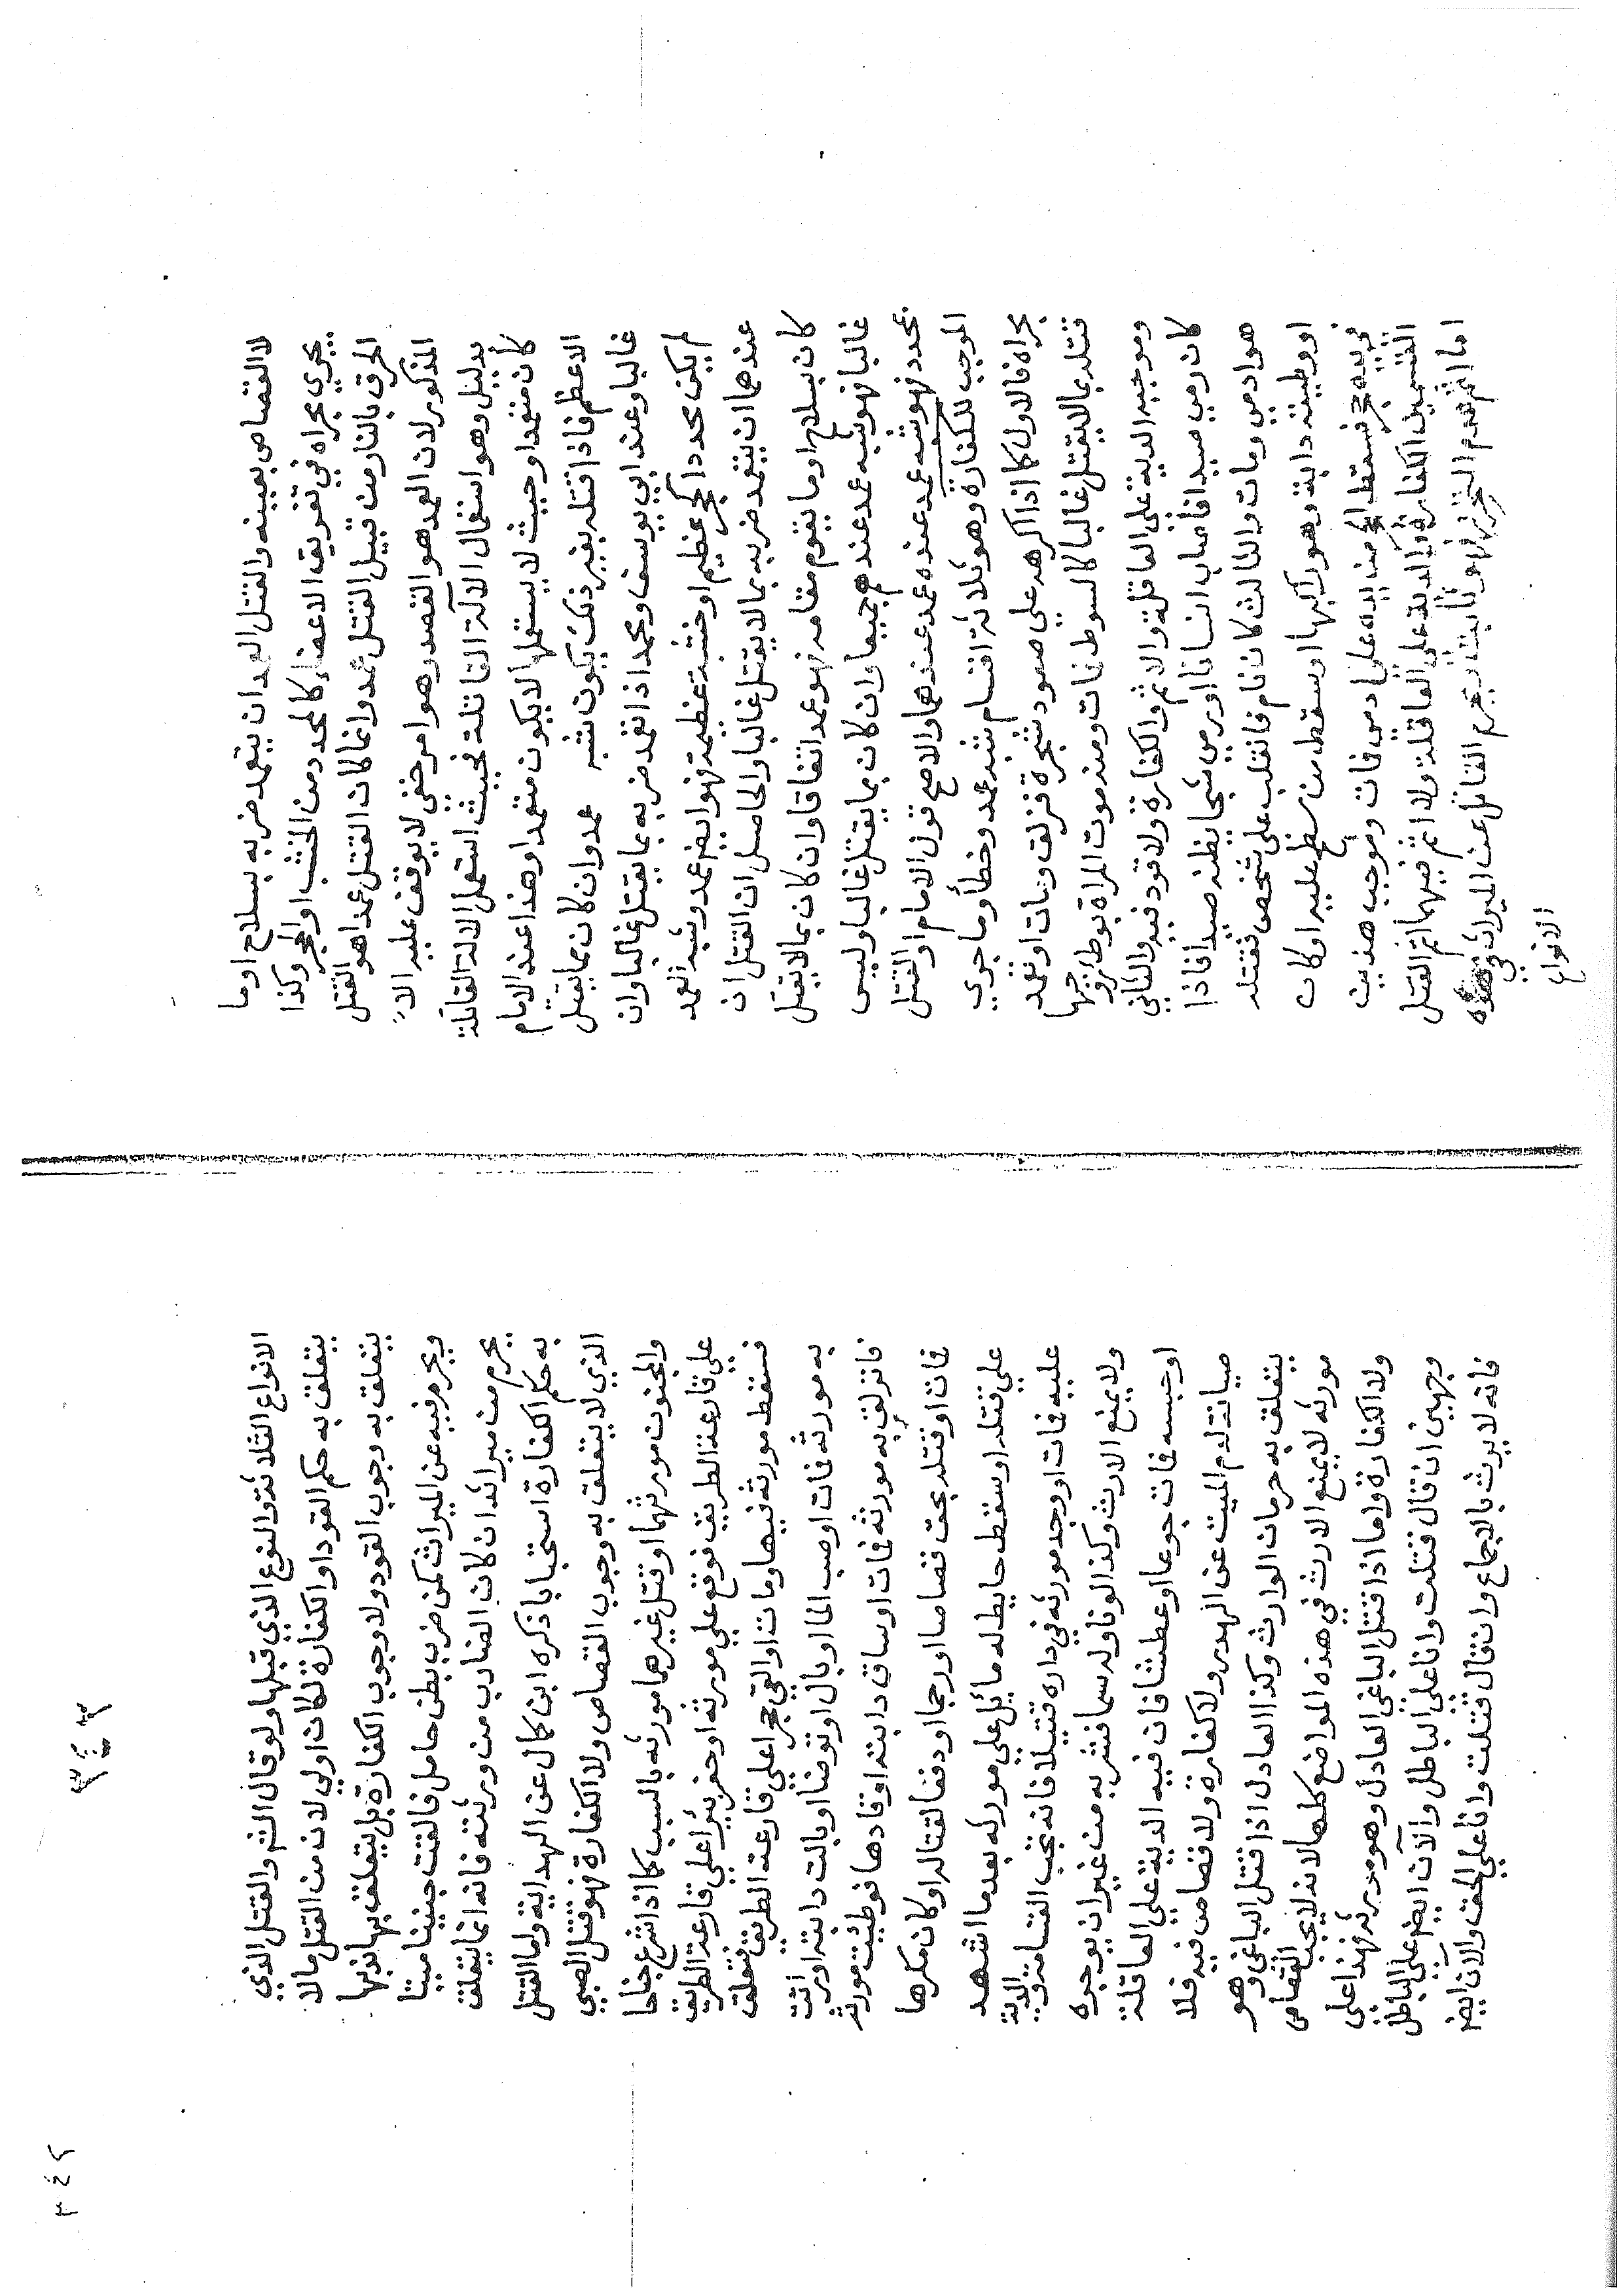 لا القصاص بعينه والقتل العمد ان يتعمد ضربه بسلاح اوما
يجري مجراه في تفريق الاعضاء كالمحدد من الخشب او الحجر وكذا
الحرق بالنار من قبيل القتل عمد وانما كان القتل عمدا هو القتل
المذكور لان العمد هو القصد وهو امر خفي لا يوقف عليه الا
بدليل وهو استعمال الآلة القاتلة فحيث استعمل الالة القاتلة
كان متعمدا وحيث لا يستعملها لا يكون متعمدا وهذا عند الامام
الاعظم فاذا قتله بغير ذلك يكون شبه عمد وان كان مما يقتل
غالبا وعند ابي يوسف ومحمد اذا تعمد ضربه بما يقتل غالبا وان
لم يكن محددا كحجر عظيم او خشبة عظيمة فهو ايضا عمد وشبه العمد
عندهما ان يتعمد ضربه بما لا يقتل غالبا والحاصل ان القتل ان
كان بسلاح اوما يقوم مقامه فهو عمد اتفاقا وان كان بما لا يقتل
غالبا فهو شبه عمد عندهم جميعا وان كان بما يقتل غالبا وليس
بمحدد فهو شبه عمد عنده عمد عندهما والاصح قول الامام او القتل
الموجب للكفارة وهو ثلاثة اقسام شبه عمد وخطأ وما جري
مجراه فالاول كما اذا اكرهه علي صعود شجرة فزلق ومات او تعمد
قتله بما لا يقتل غالبا كالسوط فمات ومنه موت المراة بوطئ زوجها
وموجبه الدية على العاقلة والاثم والكفارة ولا قود فيه والثاني
كان رمي صيدا فاصاب انسانا او رمي شبحا يظنه صيدا فاذا
هو ادمي ومات والثالث كان نام فانقلب علي شخص فقتله
او وطيته دابة وهو راكبها او سقط من سطح عليه او كان
في يده حجر فسقط الحجر من يده على ادمي فمات وموجب هذين
القسمين الكفارة والدية على العاقلة ولا اثم فيهما اثم القتل
اما اثم عدم التحرز فهو ثابت ويحرم القاتل عن الميراث في هذه
الانواع
الانواع الثلاثة والنوع الذي قبلها ولو قال الشم والقتل الذي
يتعلق به حكم القود او الكفارة لكان اولي لان من القتل ما لا
يتعلق به وجوب القود ولا وجوب الكفارة بل يتعلق بها ندبها
ويحرم فيه عن الميراث كمن ضرب بطن حامل فالقت جنينا ميتا
يحرم من ميراثه ان كان الضارب من ورثته فانه انما يتعلق
به حكم الكفارة استحبابا ذكره ابن كمال عن الهداية واما القتل
الذي لا يتعلق به وجوب القصاص ولا الكفارة فهو قتل الصبي
والمجنون مورثهما او قتل غيرهما مورثه بالسبب كما اذا اشرع جناحا
علي قارعة الطريق فوقع علي مورثه او حفر بئرا علي قارعة الطريق
فسقط مورثه فيها ومات او القي حجرا علي قارعة الطريق فتعلق
به مورثه فمات او صب الما او بال او توضا او بالت دابته او راثت
فانزلق به مورثه فمات او ساق دابته او قادها فوطئت مورثه
فمات او قتله بحق قصاصا او رجما او دفعا لقتاله او كان مكرها
علي قتله او سقط حايط له مائل علي مورثه بعد ما اشهد
عليه فمات او وجد مورثه في داره قتيلا فانه تجب القسامة والدية
ولا يمنع الارث وكذا لو ناوله سما فشربه من غير ان يوجره
او حبسه فمات جوعا او عطشا فان فيه الدية على العاقلة
صيانة لدم الميت عن الهدر ولا كفارة ولا قصاص فيه فلا
يتعلق به حرمان الوارث وكذا العادل اذا قتل الباغي وهو
مورثه لا يمنع الارث في هذه المواضع كلها لانه لا يجب القصاص
ولا الكفارة واما اذا قتل الباغي العادل وهو مورثه فهذا على
وجهين ان قال قتلت وانا على الباطل والآن ايضا على الباطل
فانه لا يرث بالاجماع وان قال قتلت وانا علي الحق والان ايضا
٣٤٣
٣٤٢